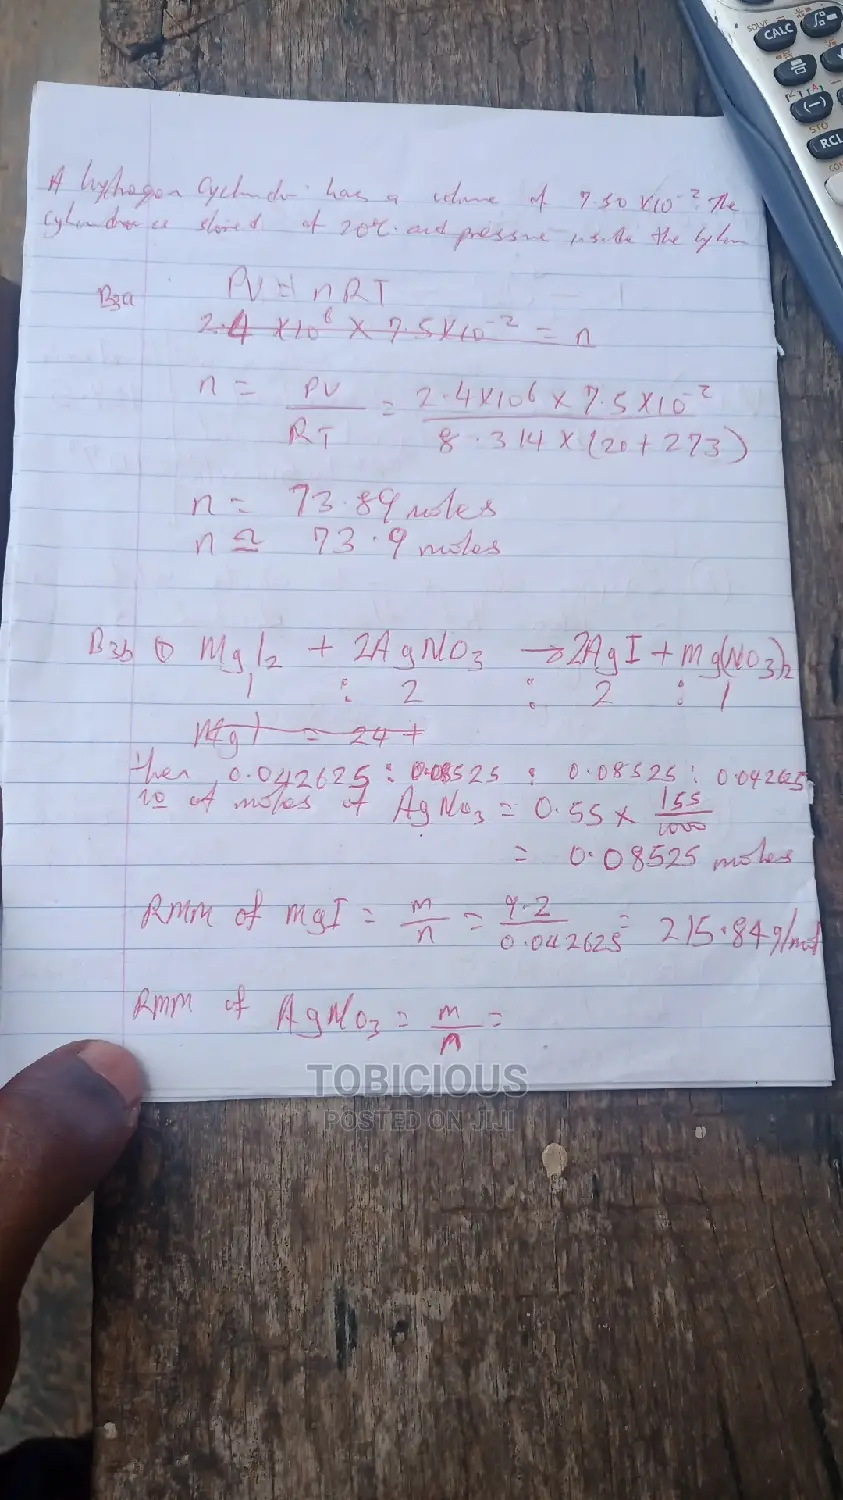 SOLVE
CALC
STO
RCL
(-)
A hydrogen Cylinder has a volume of 7.50 X10⁻². The
Cylinder is stored at 20°C and pressure inside the
B3a PV = nRT
2.4 X10⁶ X 7.5X10⁻² = n
n = PV/RT = 2.4X10⁶ X 7.5 X10⁻² / 8.314 X (20+273)
n = 73.89 moles
n ≃ 73.9 moles
B3b ① MgI2 + 2AgNO3 → 2AgI + mg(NO3)2
1 : 2 : 2 : 1
MgI = 24 +
then 0.042625 : 0.08525 : 0.08525 : 0.042625
no of moles of AgNO3 = 0.55 X 155/1000
= 0.08525 moles
RMM of MgI = m/n = 9.2/0.042625 = 215.84g/mol
RMM of AgNO3 = m/n =
TOBICIOUS
POSTED ON JIJI